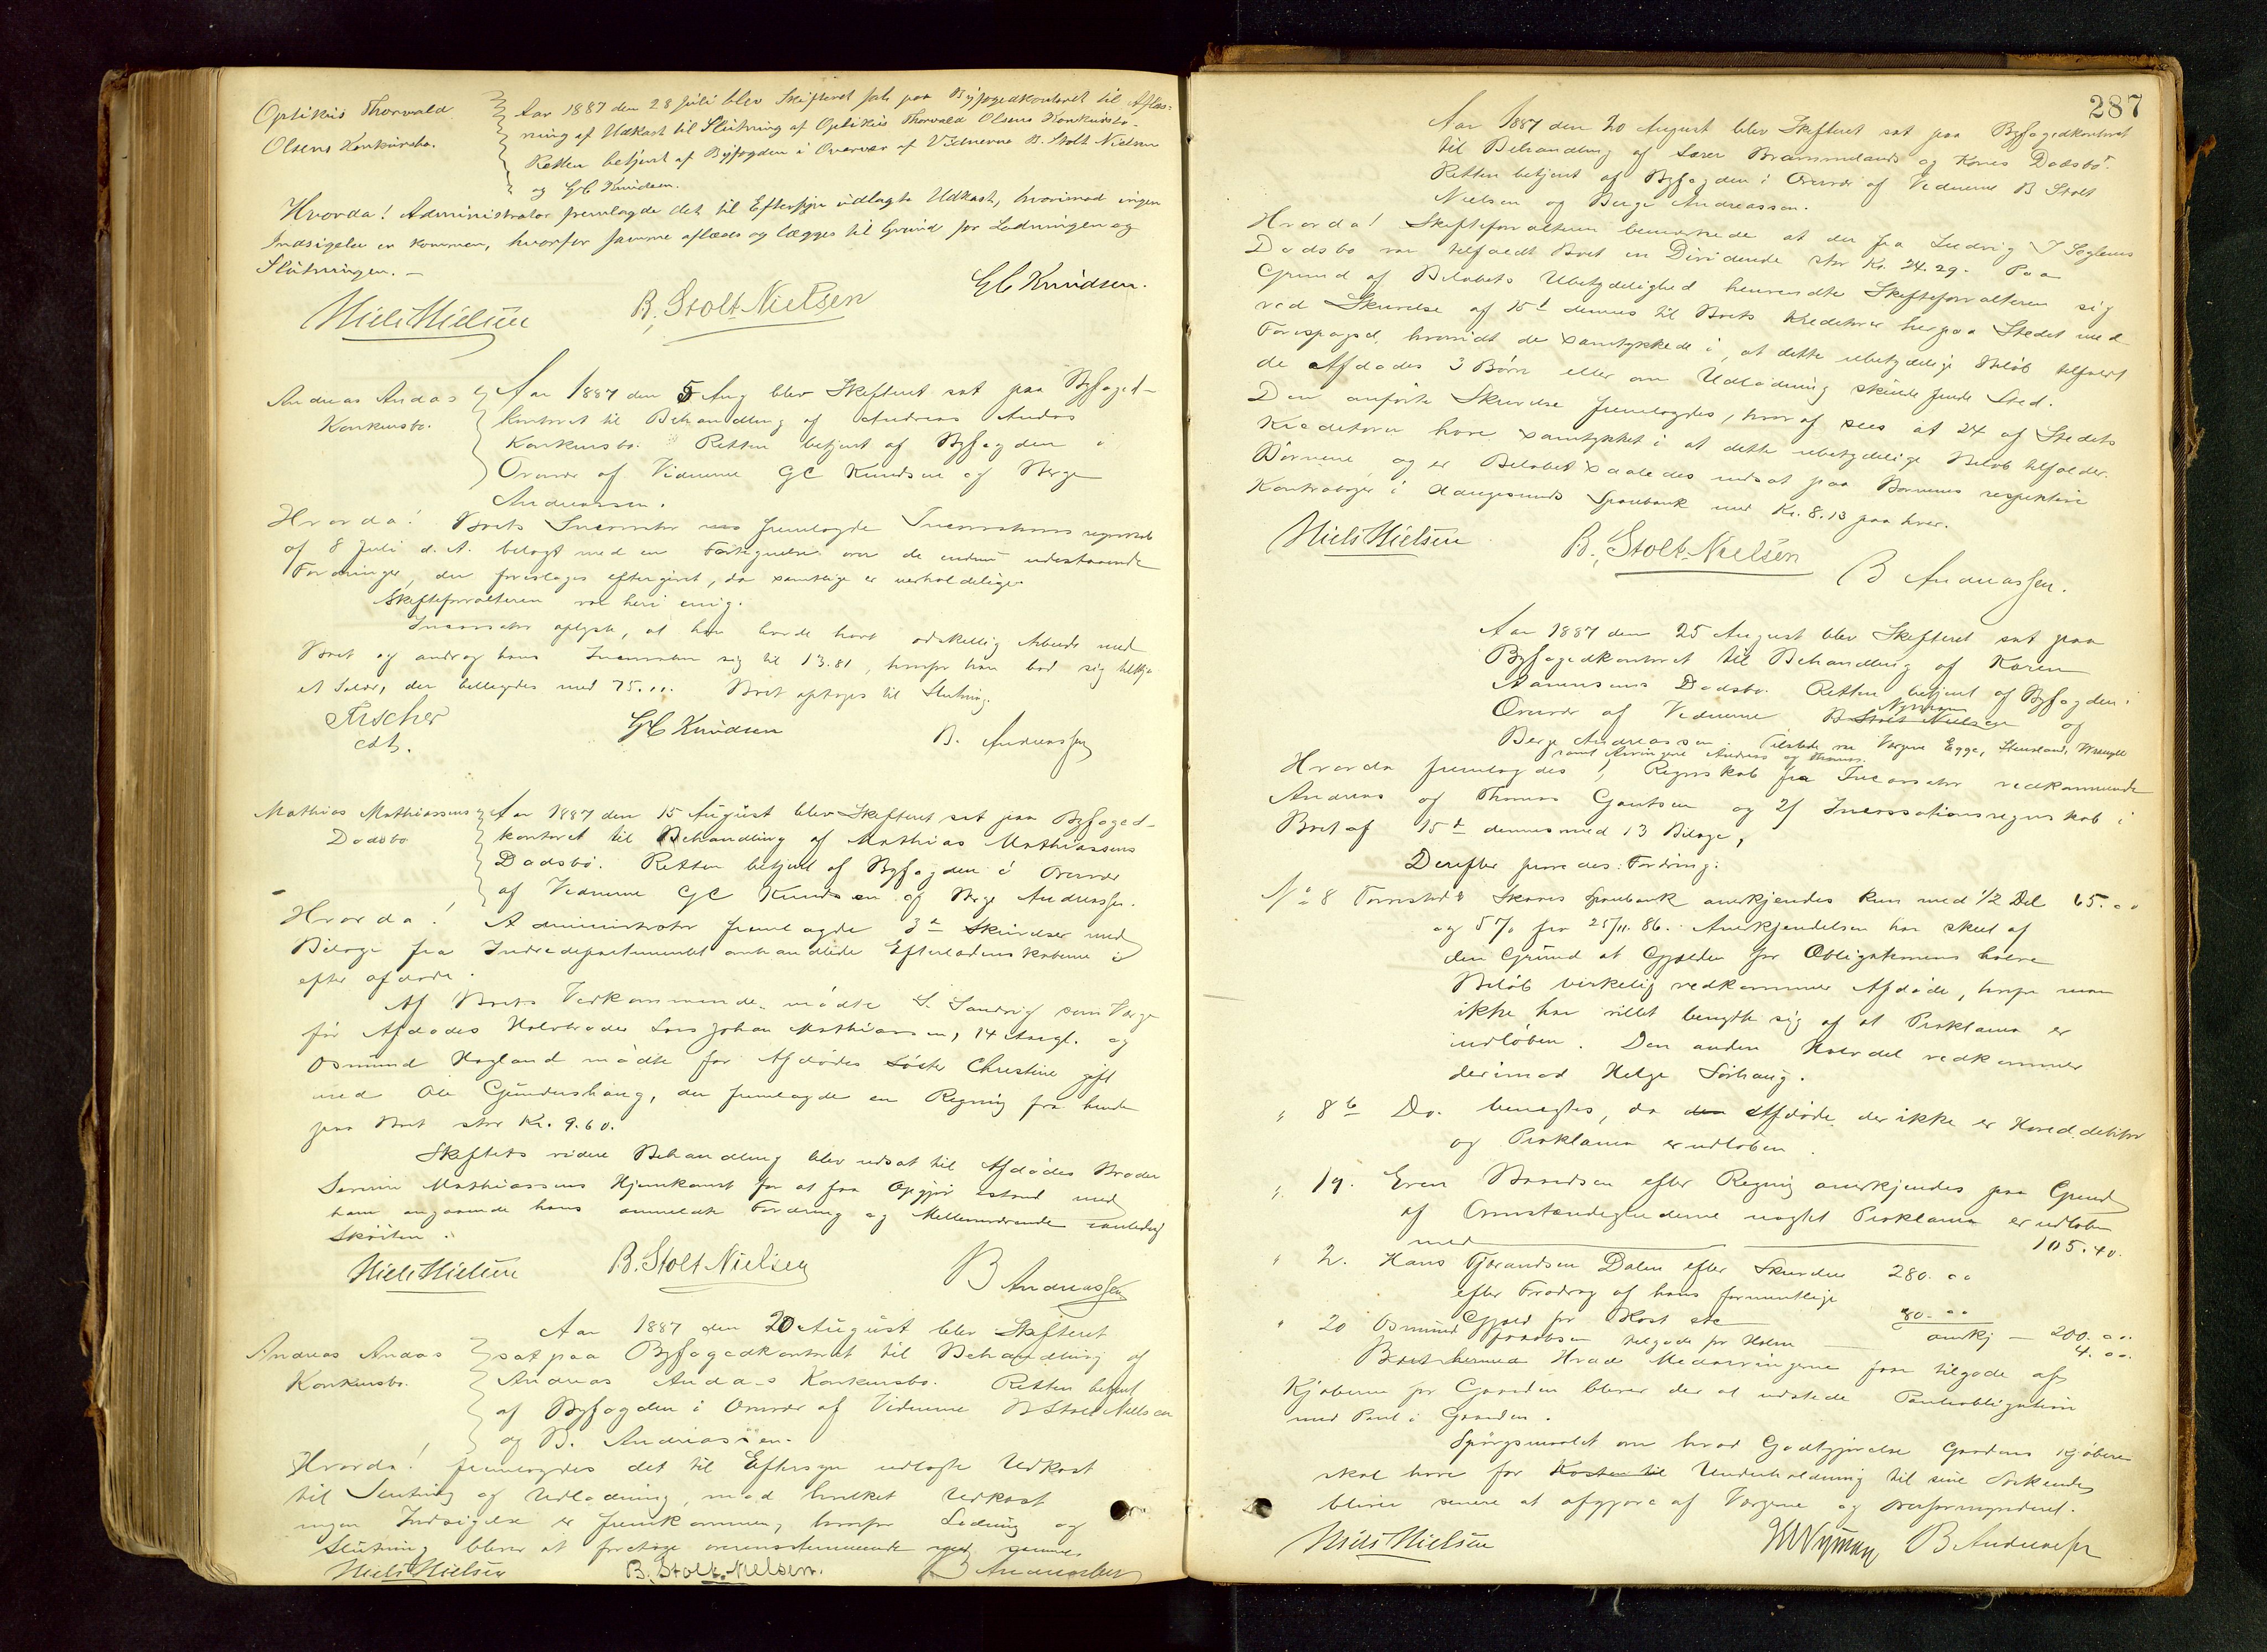 Optikus Thorvald
Olsens Konkursbo.
Aar 1887 den 28 Juli blev Skifteret sat paa Byfogedkontoret til Aflæs-
ning af Udkast til Slutning af Optikus Thorvald Olsens Konkursbo.
Retten betjent af Byfogden i Overvær af Vidnerne B. Stolt Nielsen
og GC Knudsen.
Hvorda! Administrator fremlagde det til Eftersyn udlagte Udkast, hvorimod ingen
Indsigelse er kommen, hvorfor samme aflæses og lægges til Grund for Lodningen og
Slutningen. –
Niels Nielsen B. Stolt-Nielsen GC Knudsen.
Andreas Andas
Konkursbo.
Aar 1887 den 5 Aug blev Skifteret sat paa Byfoged-
kontoret til Behandling af Andreas Andas
Konkursbo. Retten betjent af Byfogden i
Overvær af Vidnerne GC Knudsen og Berge
Andreassen.
Hvorda! Boets Incassator fremlagde Incassationsregnskab
af 8 Juli d. A. belagt med en Fortegnelse over de endnu udestaaende
Fordringer, der foreslages eftergivet, da samtlige er uerholdelige.
Skifteforvalteren var heri enig.
Incassator oplyste, at han havde havt adskillig Arbeide med
Boet og androg hans Incassation sig til 13.81, hvorfor han bad sig tillagt
et Salær, der billigedes med 75.00. Boet optoges til Slutning.
Fischer
cst. GC Knudsen B. Andreassen
Mathias Mathiassens
Dødsbo
Aar 1887 den 15 August blev Skifteret sat paa Byfoged-
kontoret til Behandling af Mathias Mathiassens
Dødsbo. Retten betjent af Byfogden i Overvær
af Vidnerne GC Knudsen og Berge Andreassen.
Hvorda! Administrator fremlagde 3de Skrivelser med
Bilage fra Indredepartementet omhandlede Efterladenskaberne
efter afdøde.
Af Boets Vedkommende mødte S. Sandvig som Værge
for Afdødes Halvbroder Lars Johan Mathiassen, 14 Aar gl. og
Osmund Hagland mødte for Afdødes Søster Christine gift
med Ole Gundershaug, der fremlagde en Regning fra hende
paa Boet stor Kr. 9.60.
Skiftets videre Behandling blev udsat til Afdødes Broder
Severin Mathiassens Hjemkomst for at faa Opgjør istand med
ham angaaende hans anmeldte Fordring og Mellemværende
Skøiten.
Niels Nielsen B. Stolt Nielsen B Andreassen
Andreas Andas
Konkursbo.
Aar 1887 den 20 August blev Skifteret
sat paa Byfogedkontoret til Behandling af
Andreas Andas Konkursbo. Retten betjent
af Byfogden i Overvær af Vidnerne B Stolt Nielsen
og B. Andreassen.
Hvorda! fremlagdes det til Eftersyn udlagte Udkast
til Slutning og Udlodning, mod hvilket Udkast
ingen Indsigelse er fremkommen, hvorfor Lodning og
Slutning bliver at foretage overensstemmende med samme.
Niels Nielsen B. Stolt-Nielsen. B Andreassen
287
Aar 1887 den 20 August blev Skifteret sat paa Byfogedkontoret
til Behandling af Brammelands og Kones Dødsbo.
Retten betjent af Byfogden i Overvær af Vidnerne B Stolt
Nielsen og Berge Andreassen.
Hvorda! Skifteforvalteren bemærkede at der fra Ludvig
Dødsbo var tilfaldt Boet en Dividende stor Kr. 24.29. Paa
Grund af Beløbets Ubetydelighed henvendte Skifteforvalteren sig
ved Skrivelse af 15de dennes til Boets Kreditorer herpaa Stedet med
Forespørgsel, hvorvidt de samtykkede i, at dette ubetydelige Beløb tilfaldt
de Afdødes 3 Børn eller om Udlodning skulde finde Sted.
Den anførte Skrivelse fremlagdes, hvoraf sees at 24 af Stedets
Kreditorer have samtykket i at dette ubetydelige Beløb tilfalder
Børnene og er Beløbet saaledes indsat paa Børnenes respektive
Kontrabøger i Haugesunds Sparebank med Kr. 8.13 paa hver.
Niels Nielsen B. Stolt-Nielsen B Andreassen.
Aar 1887 den 25 August blev Skifteret sat paa
Byfogedkontoret til Behandling af Karen
Dødsbo. Retten betjent af Byfogden i
Overvær af Vidnerne B Stolt Nielsen Nyman og
Berge Andreassen. Tilstede var Værgerne Egge,
samt Arvingerne Andreas og Thomas.
Hvorda fremlagdes 1, Regnskab fra Incassator vedkommende
Andreas og Thomas Gautsen og 2, Incassationsregnskab i
Boet af 15de dennes med 13 Bilage,
Derefter prøvedes Fordring:
No 8 Skaares Sparebank anerkjendes kun med 1/2 Del 65.00
og 5% fra 25/11.86. Anerkjendelsen har skeet af
den Grund at Gjælden for Obligationens halve
Beløb virkelig vedkommer Afdøde, hvorfor man
ikke har villet benytte sig af at Proklama er
udløben. Den anden Halvdel vedkommer
derimod Helge Sørhaug.
" 8b Do. benegtes, da den Afdøde der ikke er Hoveddebitor
og Proklama er udløben.
" 19. Even efter Regning anerkjendes paa Grund
af Omstændighederne uagtet Proklama er udløben
med 105.40.
" 2. Hans Tjerandsen Dalen efter Skrivelse 280.00
efter Fradrag af hans formentlige
Gjæld for Kost etc 80.00
anerkj – 200.00.
" 20 Osmund Jacobsen tilgode for Halm 4.00.
Boet hermed Hvad Medarvingerne faar tilgode af
Kjøberne for Gaarden bliver der at udstede Panteobligation
med Pant i Gaarden.
Spørgsmaalet om hvad Godtgjørelse Gaardens Kjøbere
skal have for Kosten til Underholdning til sine Søskende
bliver senere at afgjøre af Værgerne og Overformynderiet.
Niels Nielsen Nyman B Andreassen